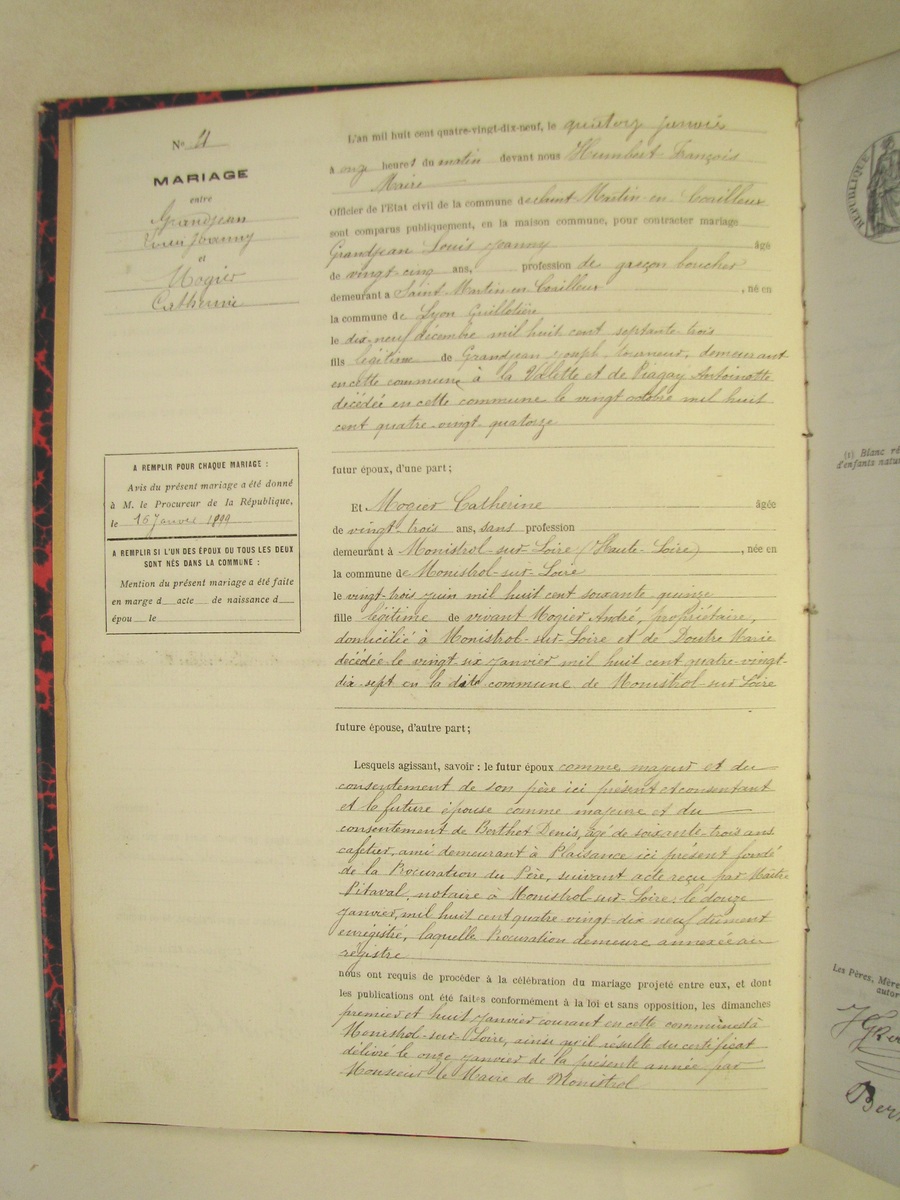 N° 4
MARIAGE
entre
Grandjean
Louis Joanny
et
Mogier
Catherine
A REMPLIR POUR CHAQUE MARIAGE :
Avis du présent mariage a été donné
à M. le Procureur de la République,
le 15 Janvier 1899
A REMPLIR SI L'UN DES ÉPOUX OU TOUS LES DEUX
SONT NÉS DANS LA COMMUNE :
Mention du présent mariage a été faite
en marge d acte de naissance d
épou le
L'an mil huit cent quatre-vingt-dix-neuf, le quatorze janvier
à onze heures du matin devant nous Humbert François
Maire
Officier de l'Etat civil de la commune de Saint-Martin-en-Coailleux
sont comparus publiquement, en la maison commune, pour contracter mariage
Grandjean Louis Joanny âgé
de vingt-cinq ans, profession de garçon boucher
demeurant à Saint Martin-en-Coailleux, né en
la commune de Lyon Guillotière
le dix-neuf décembre mil huit cent septante trois
fils légitime de Grandjean Joseph, tourneur, demeurant
en cette commune à la Valette et de Antoinette
décédée en cette commune le vingt octobre mil huit
cent quatre-vingt-quatorze
futur époux, d'une part ;
Et Mogier Catherine âgée
de vingt-trois ans, sans profession
demeurant à Monistrol-sur-Loire (Haute-Loire), née en
la commune de Monistrol-sur-Loire
le vingt-trois juin mil huit cent soixante quinze
fille légitime de vivant Mogier André, propriétaire,
domicilié à Monistrol-sur-Loire et de Doutre Marie
décédée le vingt-six janvier mil huit cent quatre-vingt-
dix-sept en la dite commune de Monistrol-sur-Loire
future épouse, d'autre part ;
Lesquels agissant, savoir : le futur époux comme majeur et du
consentement de son père ici présent et consentant
et la future épouse comme majeure et du
consentement de Berthet Denis, âgé de soixante-trois ans
cafetier, ami demeurant à Plaisance ici présent fondé
de la Procuration du Père, suivant acte reçu par Maître
Pitaval, notaire à Monistrol-sur-Loire, le douze
janvier, mil huit cent quatre-vingt-dix neuf dûment
enregistré, laquelle Procuration demeure annexée au
régistre
nous ont requis de procéder à la célébration du mariage projeté entre eux, et dont
les publications ont été faites conformément à la loi et sans opposition, les dimanches
premier et huit janvier courant en cette commune et à
Monistrol-sur-Loire, ainsi qu'il résulte du certificat
délivré le onze janvier de la présente année par
Monsieur le Maire de Monistrol
RÉPUBLIQUE
(1) Blanc ré
d'enfants natu
Les Pères, Mère
autor